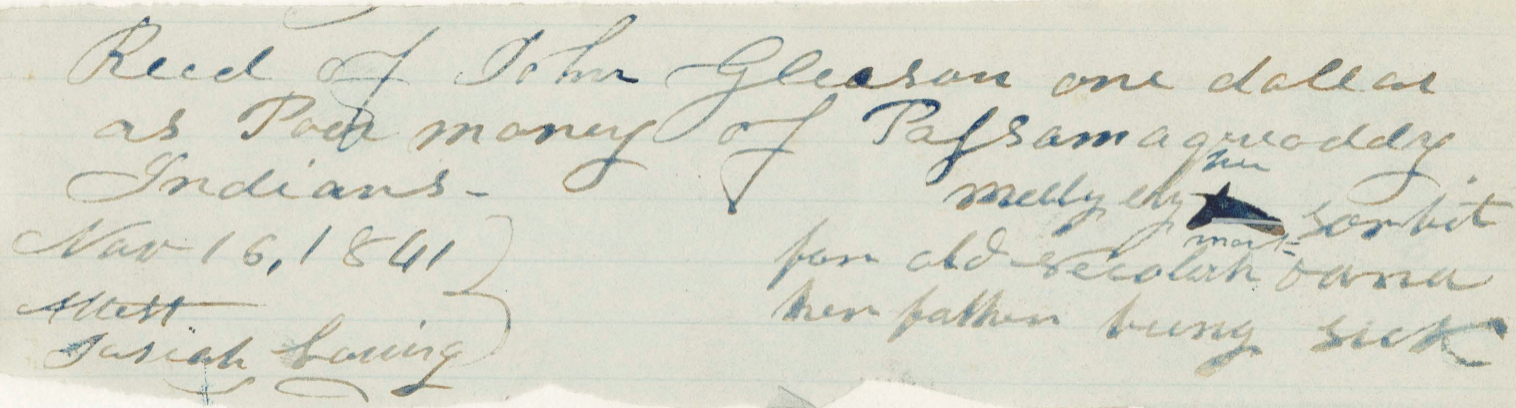 Recd of John Gleason one dollar
as Poor money of Passamaquoddy
Indians-
Nov 16, 1841
Attest
Josiah Loring
her
Melly
Sorbit
mark
for old
her father being sick